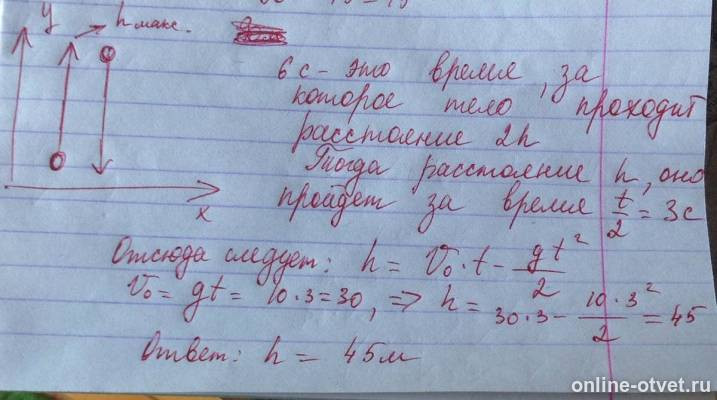 y
h макс.
x
6 с - это время, за
которое тело проходит
расстояние 2h
Тогда расстояние h, оно
пройдет за время t/2 = 3с
Отсюда следует: h = V₀·t - gt²/2
V₀ = gt = 10·3=30, => h = 30·3 - 10·3²/2 = 45
Ответ: h = 45м
online-otvet.ru